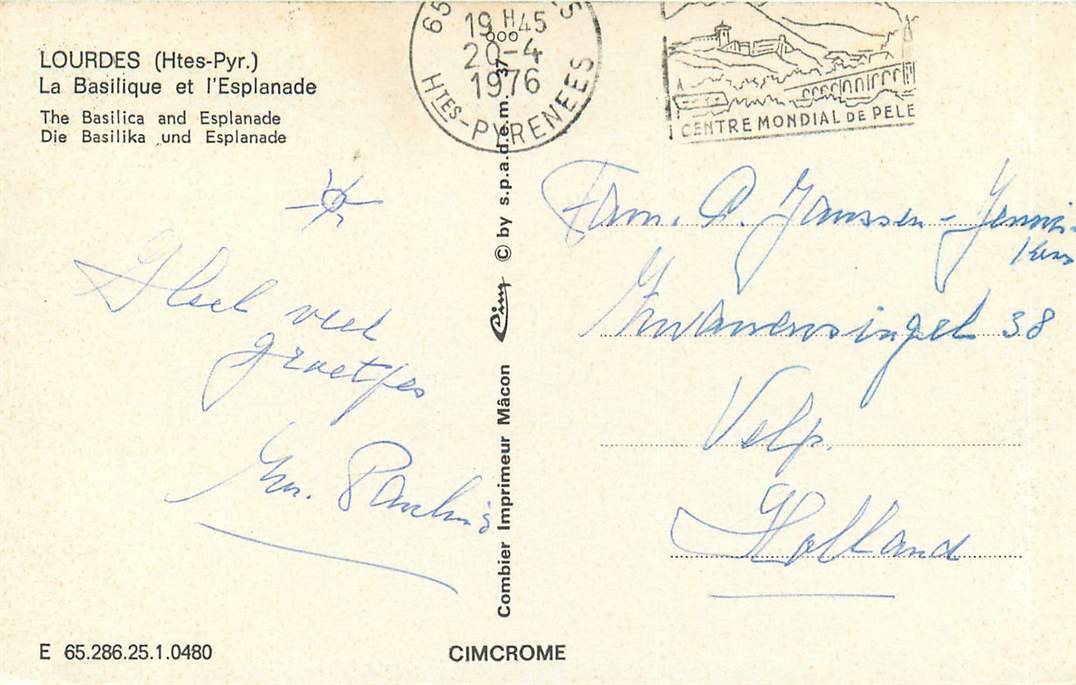 LOURDES (Htes-Pyr.)
La Basilique et l'Esplanade
The Basilica and Esplanade
Die Basilika und Esplanade
65
19 H45
20-4
1976
HTES-PYRENEES
CENTRE MONDIAL DE PELE
Heel veel
groetjes
Paulus
Combier Imprimeur Mâcon Cim © by s.p.a.d.e.m. 37
Fam. P. Janssen-
singel 38
Velp.
Holland
E 65.286.25.1.0480
CIMCROME